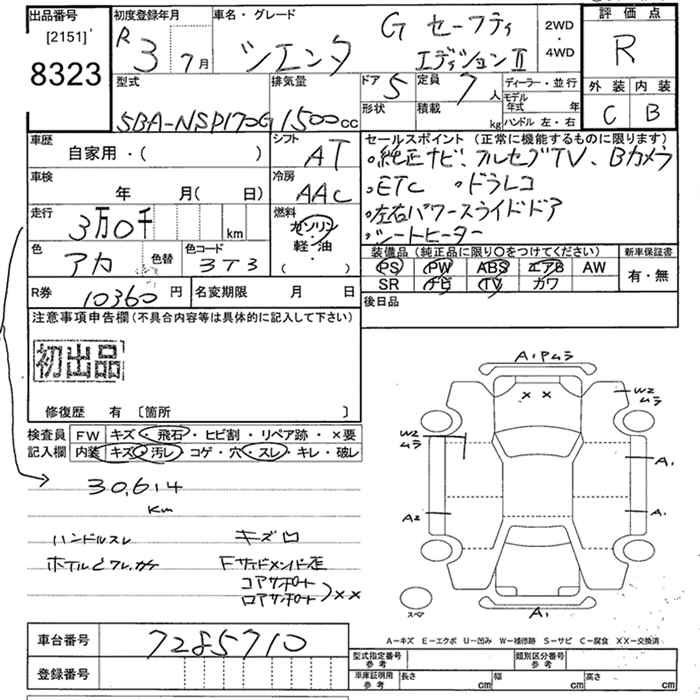 出品番号
[2151]
8323
初度登録年月
R 3 年 7 月
車名・グレード
シエンタ
G セーフティ
エディションⅡ
2WD
・
4WD
評価点
R
外装 内装
C B
型式
5BA-NSP170G
排気量
1500cc
ドア 5
定員 7 人
形状
積載 kg
ディーラー・並行
モデル年式 年
ハンドル 左・右
車歴
自家用・( )
シフト
AT
車検
年 月( 日)
冷房
AAC
走行
3万0千 km
燃料
ガソリン
軽・油
( )
色
アカ
色替
色コード
3T3
R券
10360円
名変期限 月 日
セールスポイント (正常に機能するものに限ります)
・純正ナビ、フルセグTV、Bカメラ
・ETC ・ドラレコ
・左右パワースライドドア
・シートヒーター
装備品 (純正品に限り○をつけてください)
新車保証書
PS PW ABS エアB AW
SR ナビ TV カワ
有・無
後日品
注意事項申告欄(不具合内容等は具体的に記入して下さい)
初出品
修復歴 有 〔箇所 〕
検査員 FW キズ・飛石・ヒビ割・リペア跡・×要
記入欄 内装 キズ・汚レ・コゲ・穴・スレ・キレ・破レ
30,614
Km
ハンドルスレ
キズ
コアサポート
××
A1 Pムラ
× ×
W2
ムラ
W2
ムラ
A1
A2
A1
A1
スペア
A−キズ E−エクボ U−凹み W−補修跡 S−サビ C−腐食 XX−交換済
車台番号
7285710
登録番号
型式指定番号
参考
類別区分番号
参考
車庫証明用
参考
長さ cm
幅 cm
高さ cm